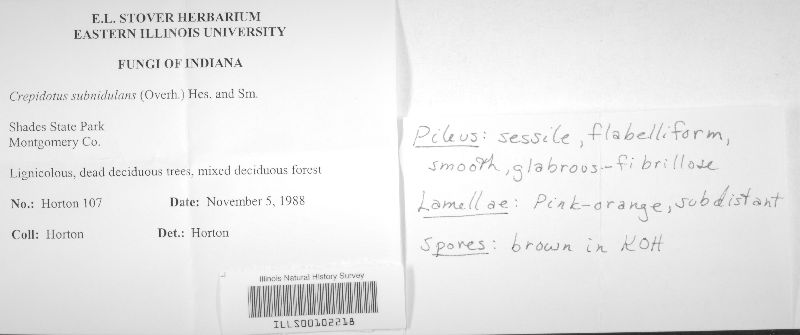 E.L. STOVER HERBARIUM
EASTERN ILLINOIS UNIVERSITY
FUNGI OF INDIANA
Crepidotus subnidulans (Overh.) Hes. and Sm.
Shades State Park
Montgomery Co.
Lignicolous, dead deciduous trees, mixed deciduous forest
No.: Horton 107 Date: November 5, 1988
Coll: Horton Det.: Horton
Illinois Natural History Survey
ILLS00102218
Pileus: sessile, flabelliform,
smooth, glabrous-fibrillose
Lamellae: Pink-orange, subdistant
Spores: brown in KOH